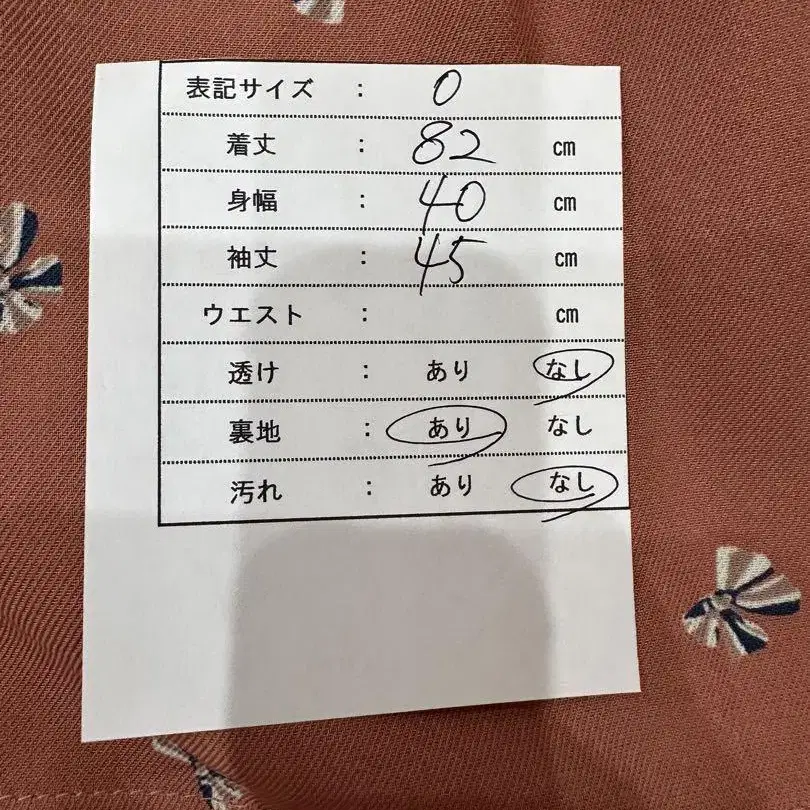 表記サイズ : 0
着丈 : 82 cm
身幅 : 40 cm
袖丈 : 45 cm
ウエスト : cm
透け : あり なし
裏地 : あり なし
汚れ : あり なし